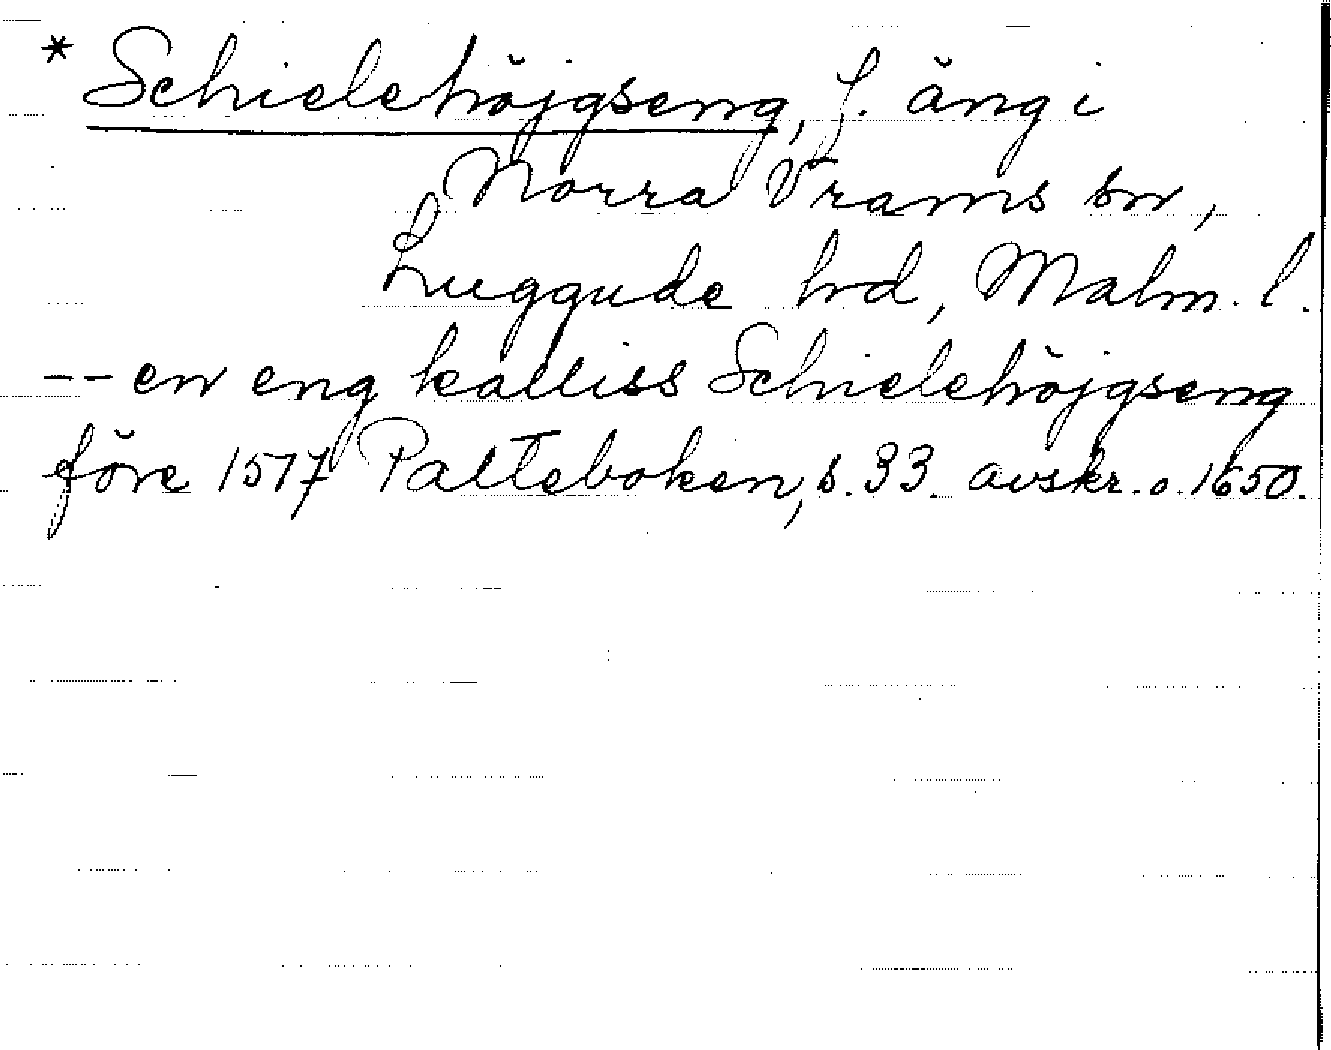 * Schielehöjgseng, f. äng i
Norra Vrams sn,
Luggude hd, Malm. l.
-- en eng kalliss Schielehöjgseng
före 1577 Palteboken, s. 33. avskr. o. 1650.